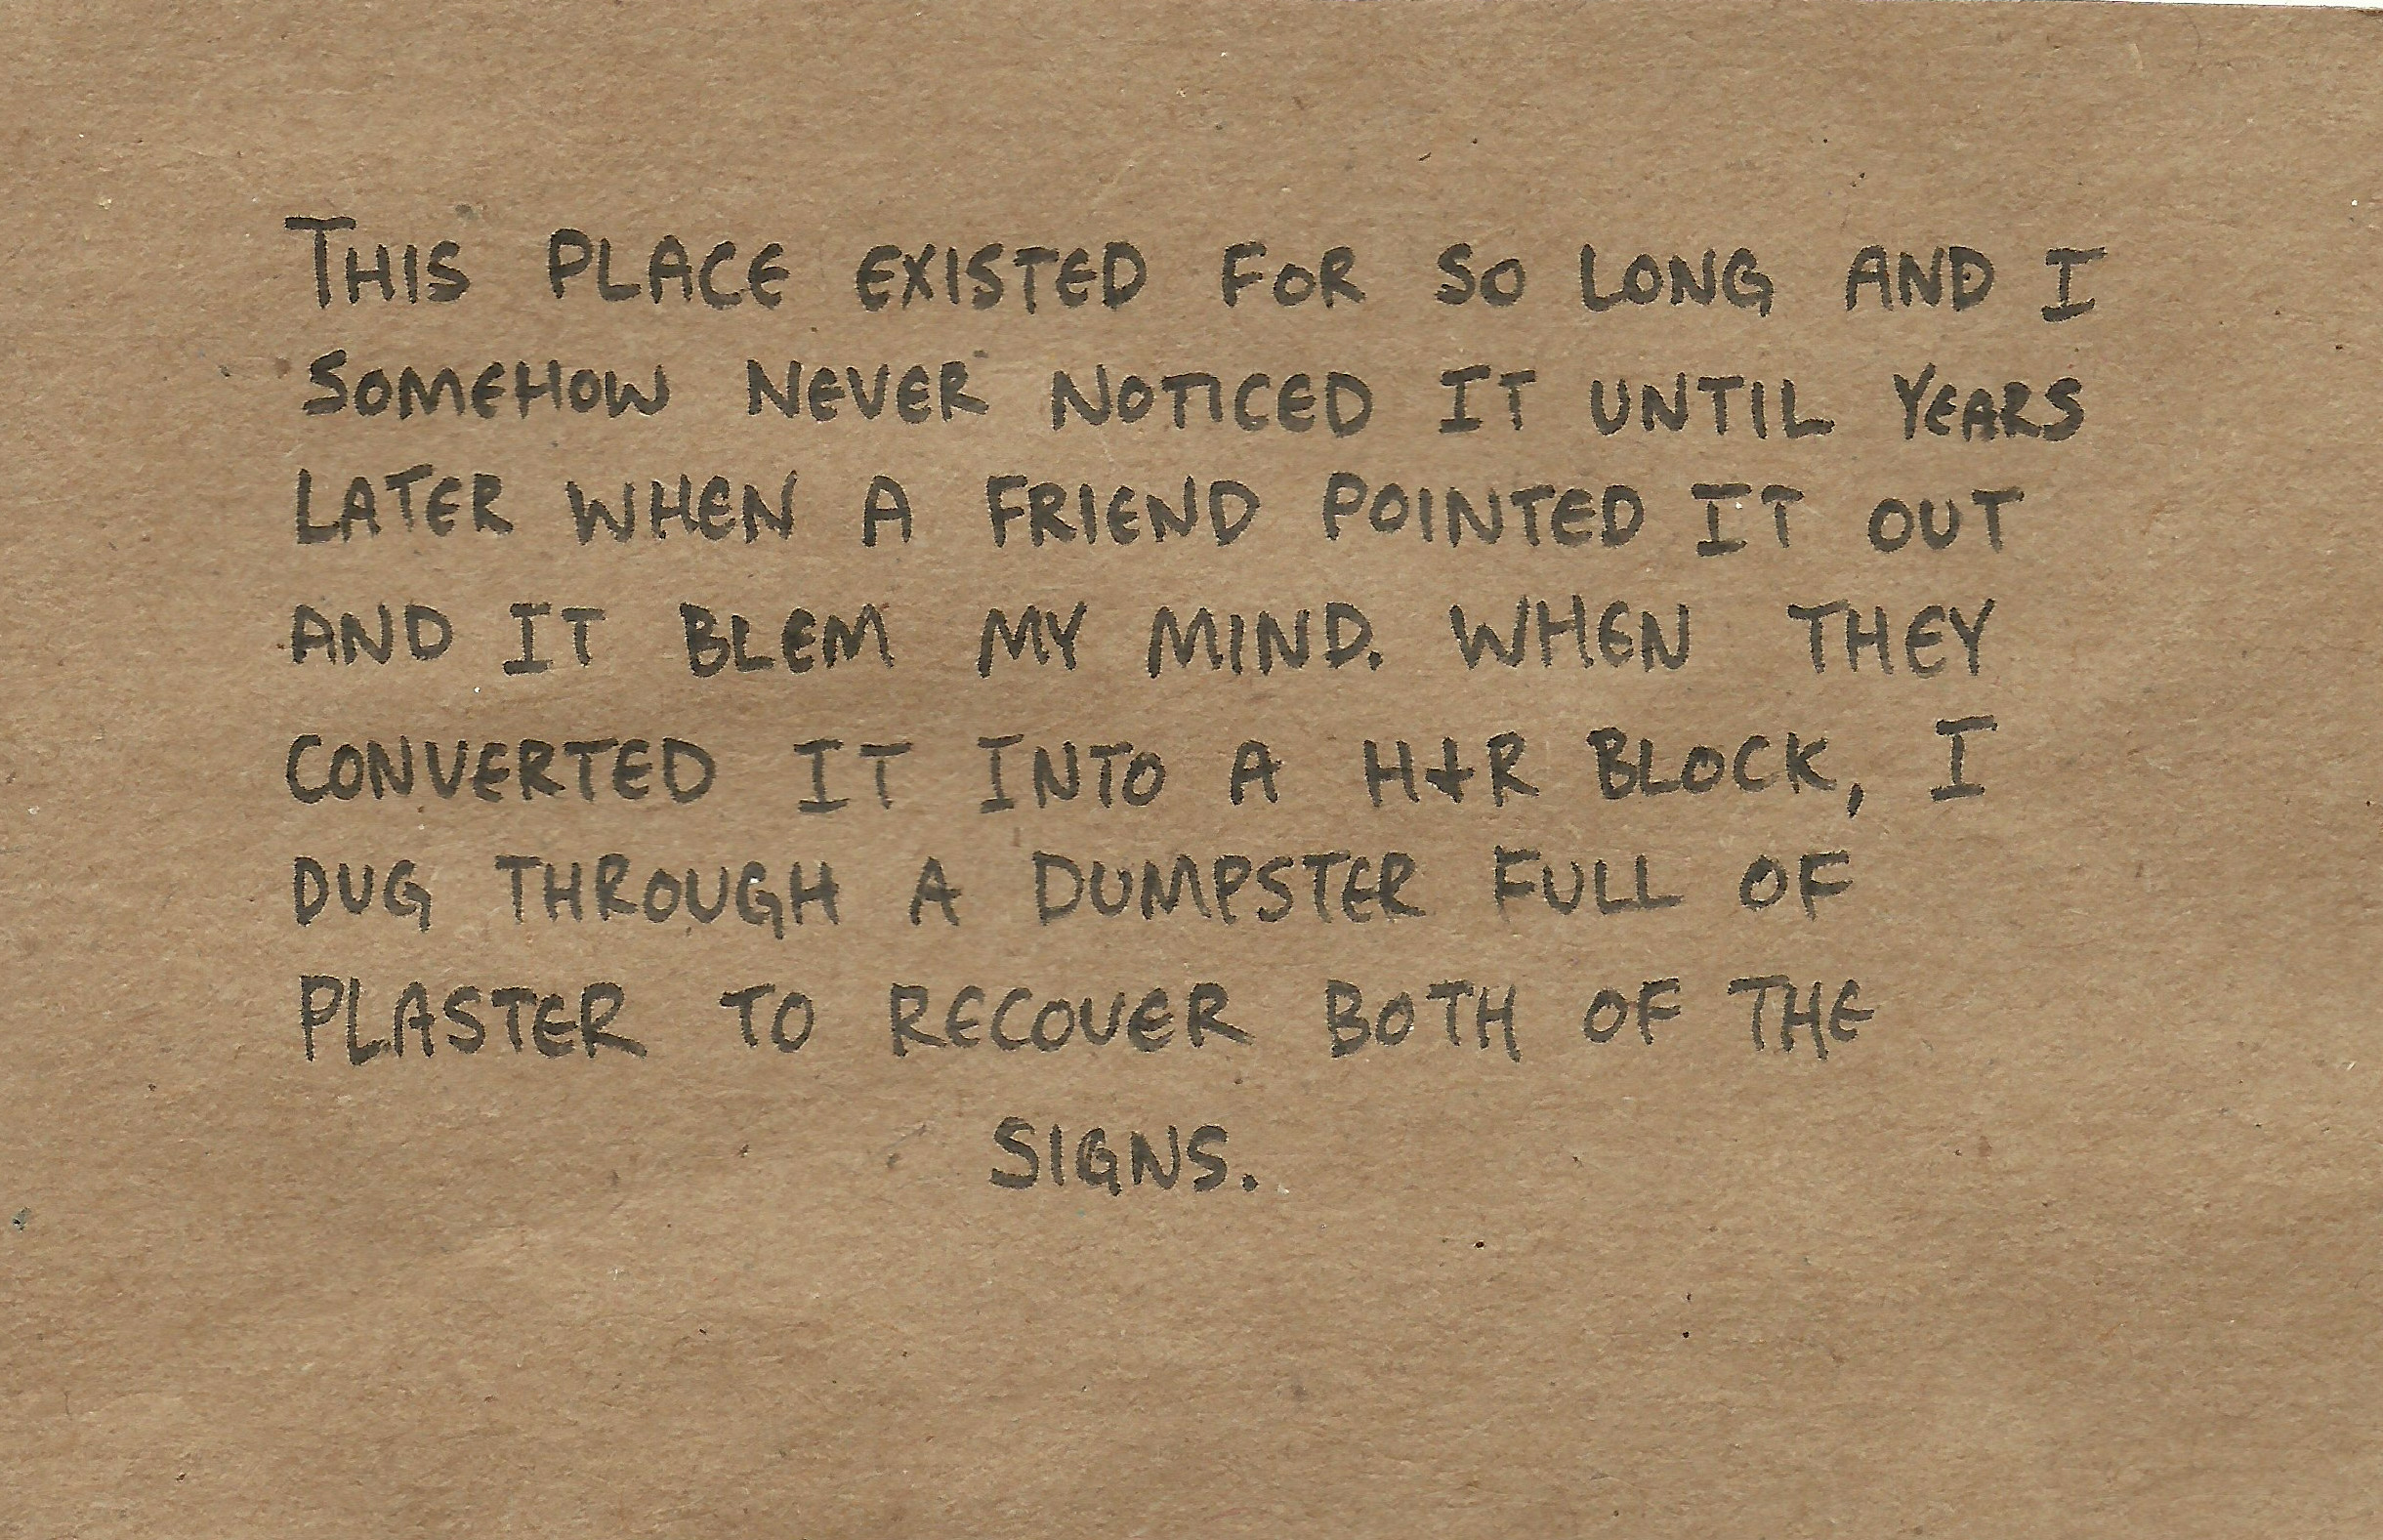 THIS PLACE EXISTED FOR SO LONG AND I
SOMEHOW NEVER NOTICED IT UNTIL YEARS
LATER WHEN A FRIEND POINTED IT OUT
AND IT BLEM MY MIND. WHEN THEY
CONVERTED IT INTO A H+R BLOCK, I
DUG THROUGH A DUMPSTER FULL OF
PLASTER TO RECOVER BOTH OF THE
SIGNS.